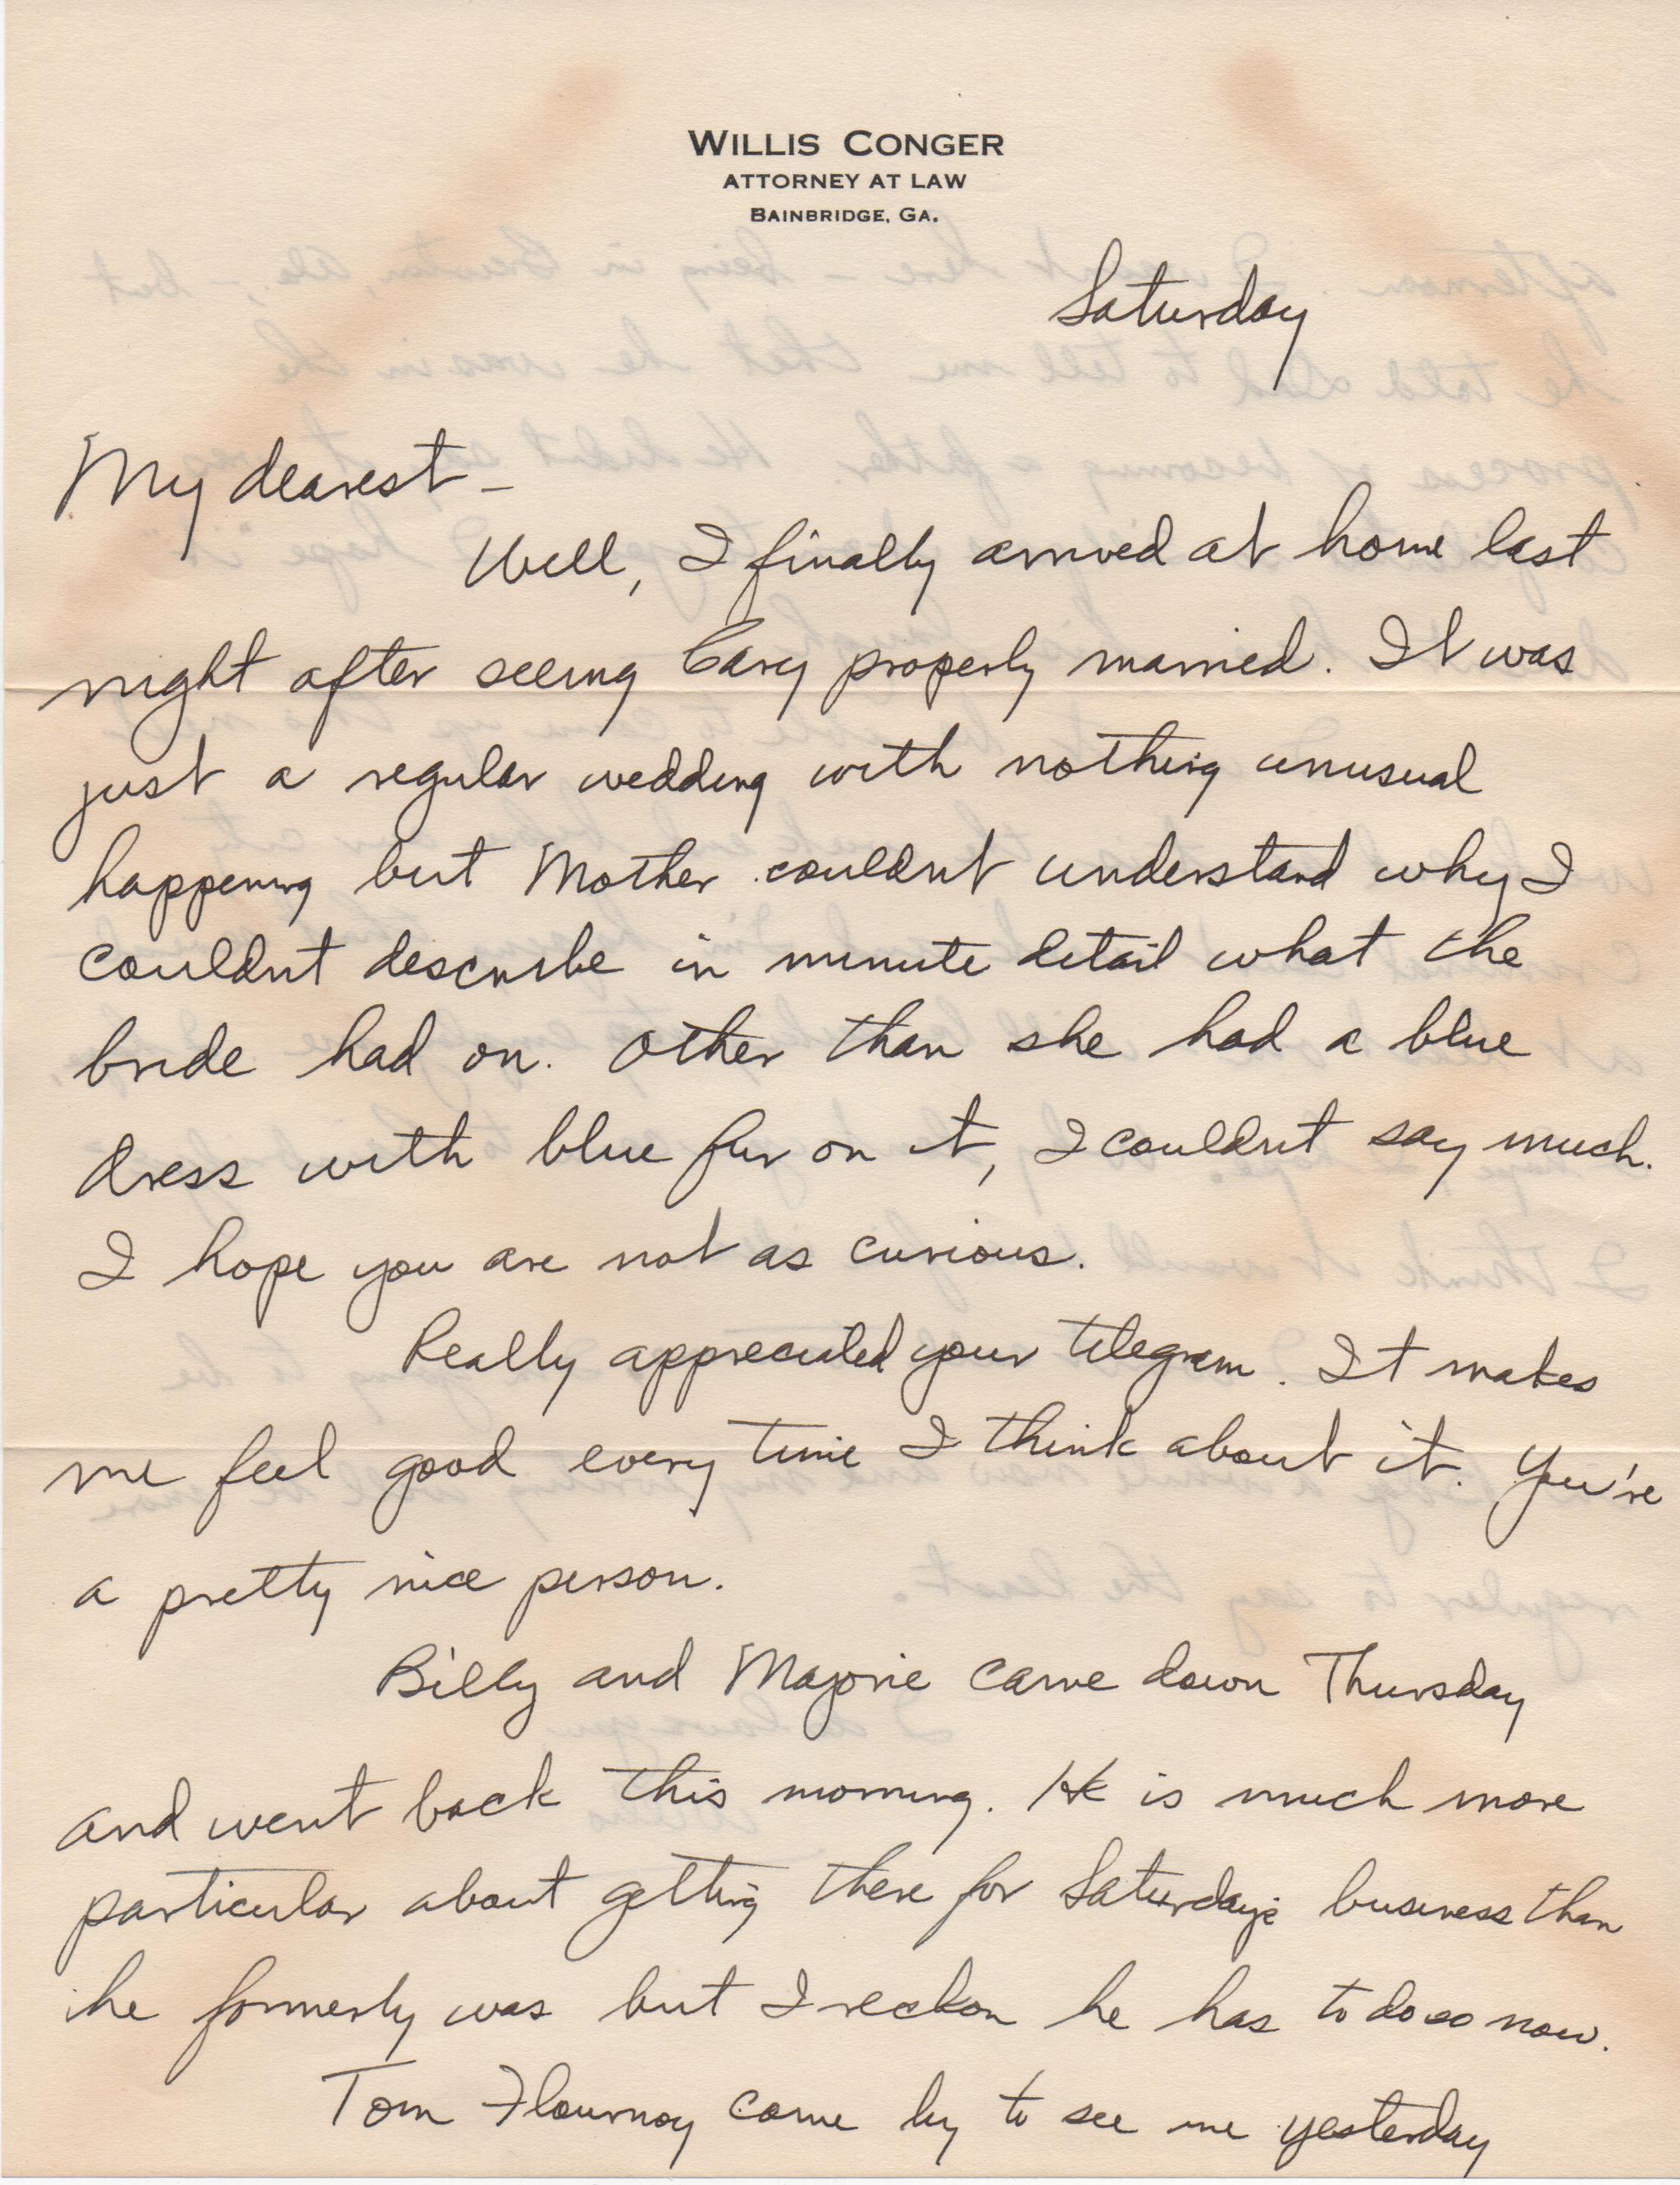 WILLIS CONGER
ATTORNEY AT LAW
BAINBRIDGE, GA.
Saturday
My dearest -
Well, I finally arrived at home last
night after seeing Cary properly married. It was
just a regular wedding with nothing unusual
happening but Mother couldnt understand why I
couldnt describe in minute detail what the
bride had on. Other than she had a blue
dress with blue fur on it, I couldnt say much.
I hope you are not as curious.
Really appreciated your telegram. It makes
me feel good every time I think about it. You're
a pretty nice person.
Billy and Majorie came down Thursday
and went back this morning. He is much more
particular about getting there for Saturday's business than
he formerly was but I reckon he has to do so now.
Tom Flournoy came by to see me yesterday